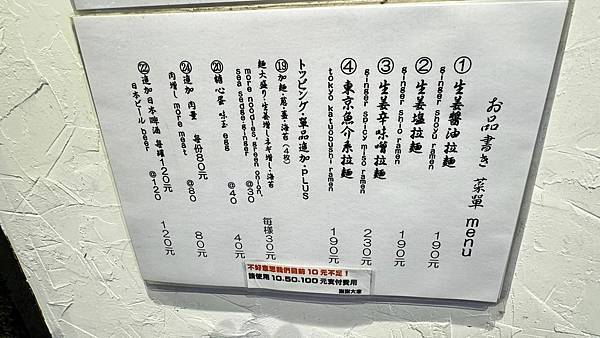 お品書き 菜單 menu
① 生姜醬油拉麵 190元
ginger shoyu ramen
② 生姜塩拉麵 190元
ginger shio ramen
③ 生姜辛味噌拉麵 230元
ginger spicy miso ramen
④ 東京魚介系拉麵 190元
tokyo katuobushi ramen
トッピング・單品追加・PLUS
⑲ 加麵・蔥・薑・海苔(4枚) 每樣30元
麺大盛り・生姜増し・ネギ増し・海苔
more noodles, green onion,
sea sadge, ginger @30
⑳ 糖心蛋 味玉 egg @40 40元
㉔ 追加 肉量 每份80元 80元
肉增し more meat @80
㉒ 追加日本啤酒 每罐120元 120元
日本ビール beer @120
不好意思我們目前 10 元不足!
請使用 10.50.100 元支付費用
謝謝大家